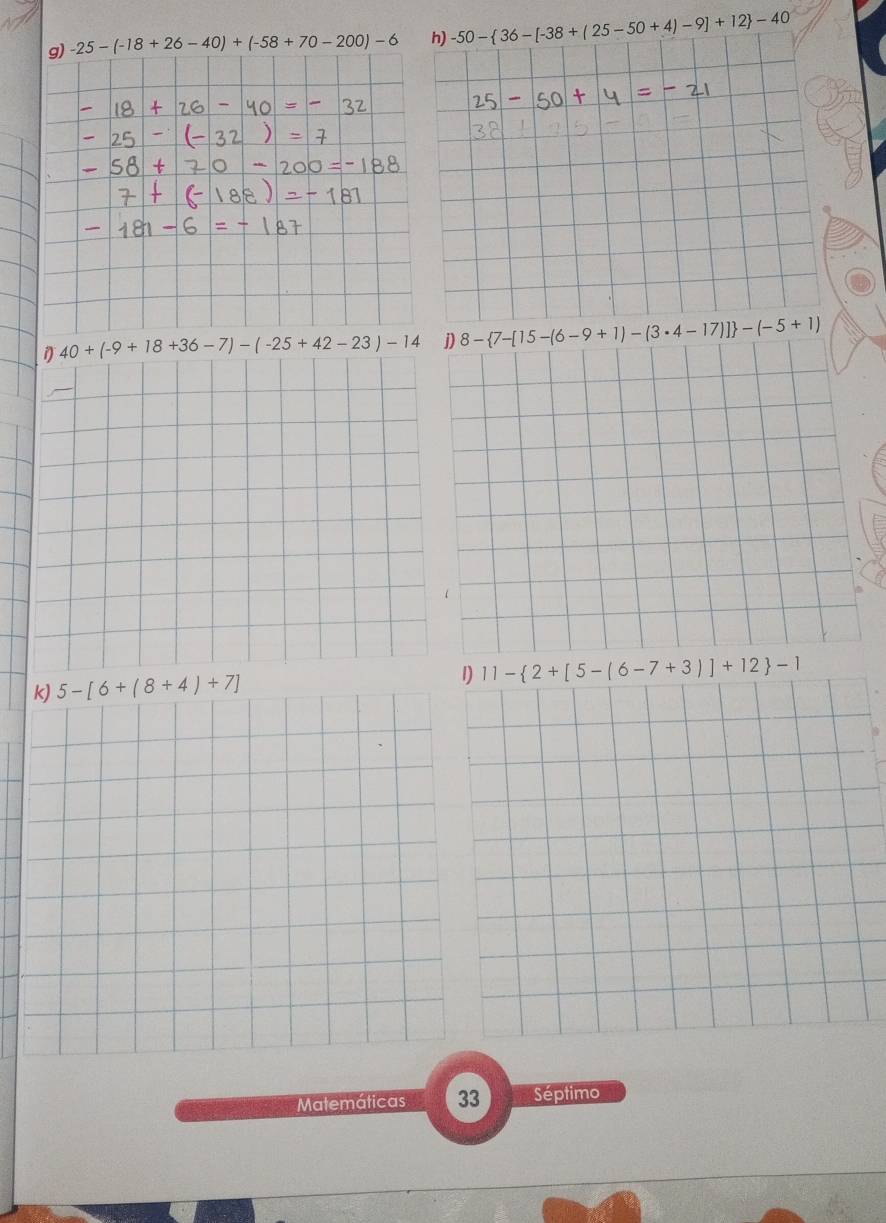 g) -25 – (-18 + 26 – 40) + (-58 + 70 – 200) – 6
- 18 + 26 - 40 = - 32
- 25 - (- 32 ) = 7
- 58 + 70 - 200 = - 188
7 + (- 188 ) = - 181
- 181 - 6 = - 187
h) -50 – { 36 – [-38 + ( 25 – 50 + 4) – 9] + 12} – 40
25 - 50 + 4 = - 21
i) 40 + (-9 + 18 +36 – 7) – ( -25 + 42 – 23 ) – 14
j) 8 – {7–[15 –(6 – 9 + 1) – (3 • 4 – 17)]} – (– 5 + 1)
k) 5 – [ 6 + ( 8 + 4 ) + 7]
l) 11 – { 2 + [ 5 – ( 6 – 7 + 3 ) ] + 12 } – 1
Matemáticas 33 Séptimo